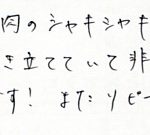 肉のシャキシャキ
き立てていて非
す! またリピー